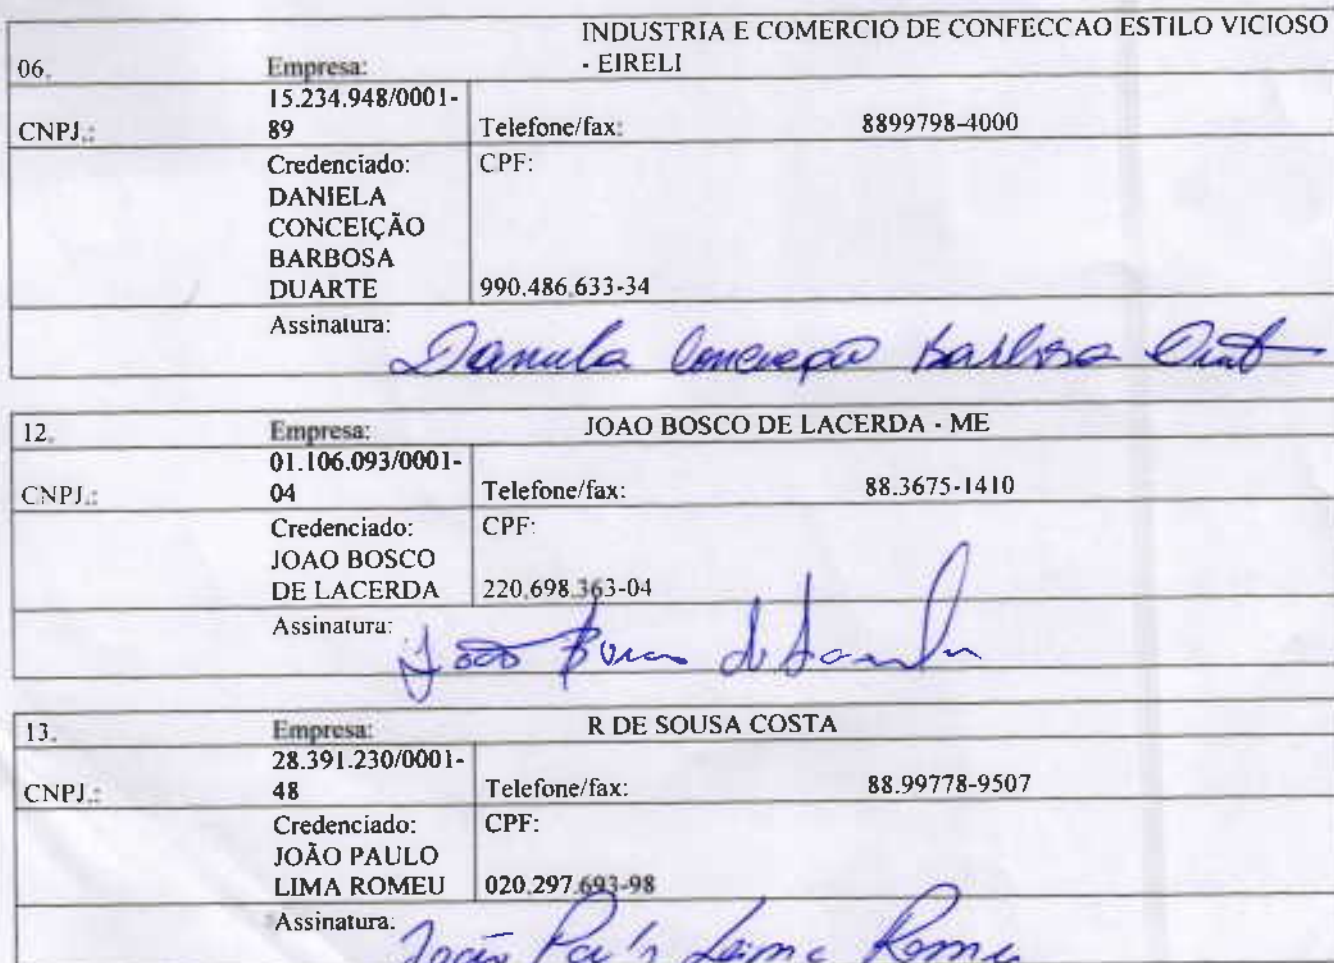 INDUSTRIA E COMERCIO DE CONFECCAO ESTILO VICIOSO
06. Empresa: - EIRELI
15.234.948/0001-
CNPJ.: 89 Telefone/fax: 8899798-4000
Credenciado: CPF:
DANIELA
CONCEIÇÃO
BARBOSA
DUARTE 990.486.633-34
Assinatura:
Daniela Conceição Barbosa
12. Empresa: JOAO BOSCO DE LACERDA - ME
01.106.093/0001-
CNPJ.: 04 Telefone/fax: 88.3675-1410
Credenciado: CPF:
JOAO BOSCO
DE LACERDA 220.698.363-04
Assinatura:
João Bosco de Lacerda
13. Empresa: R DE SOUSA COSTA
28.391.230/0001-
CNPJ.: 48 Telefone/fax: 88.99778-9507
Credenciado: CPF:
JOÃO PAULO
LIMA ROMEU 020.297.693-98
Assinatura:
João Paulo Lima Romeu